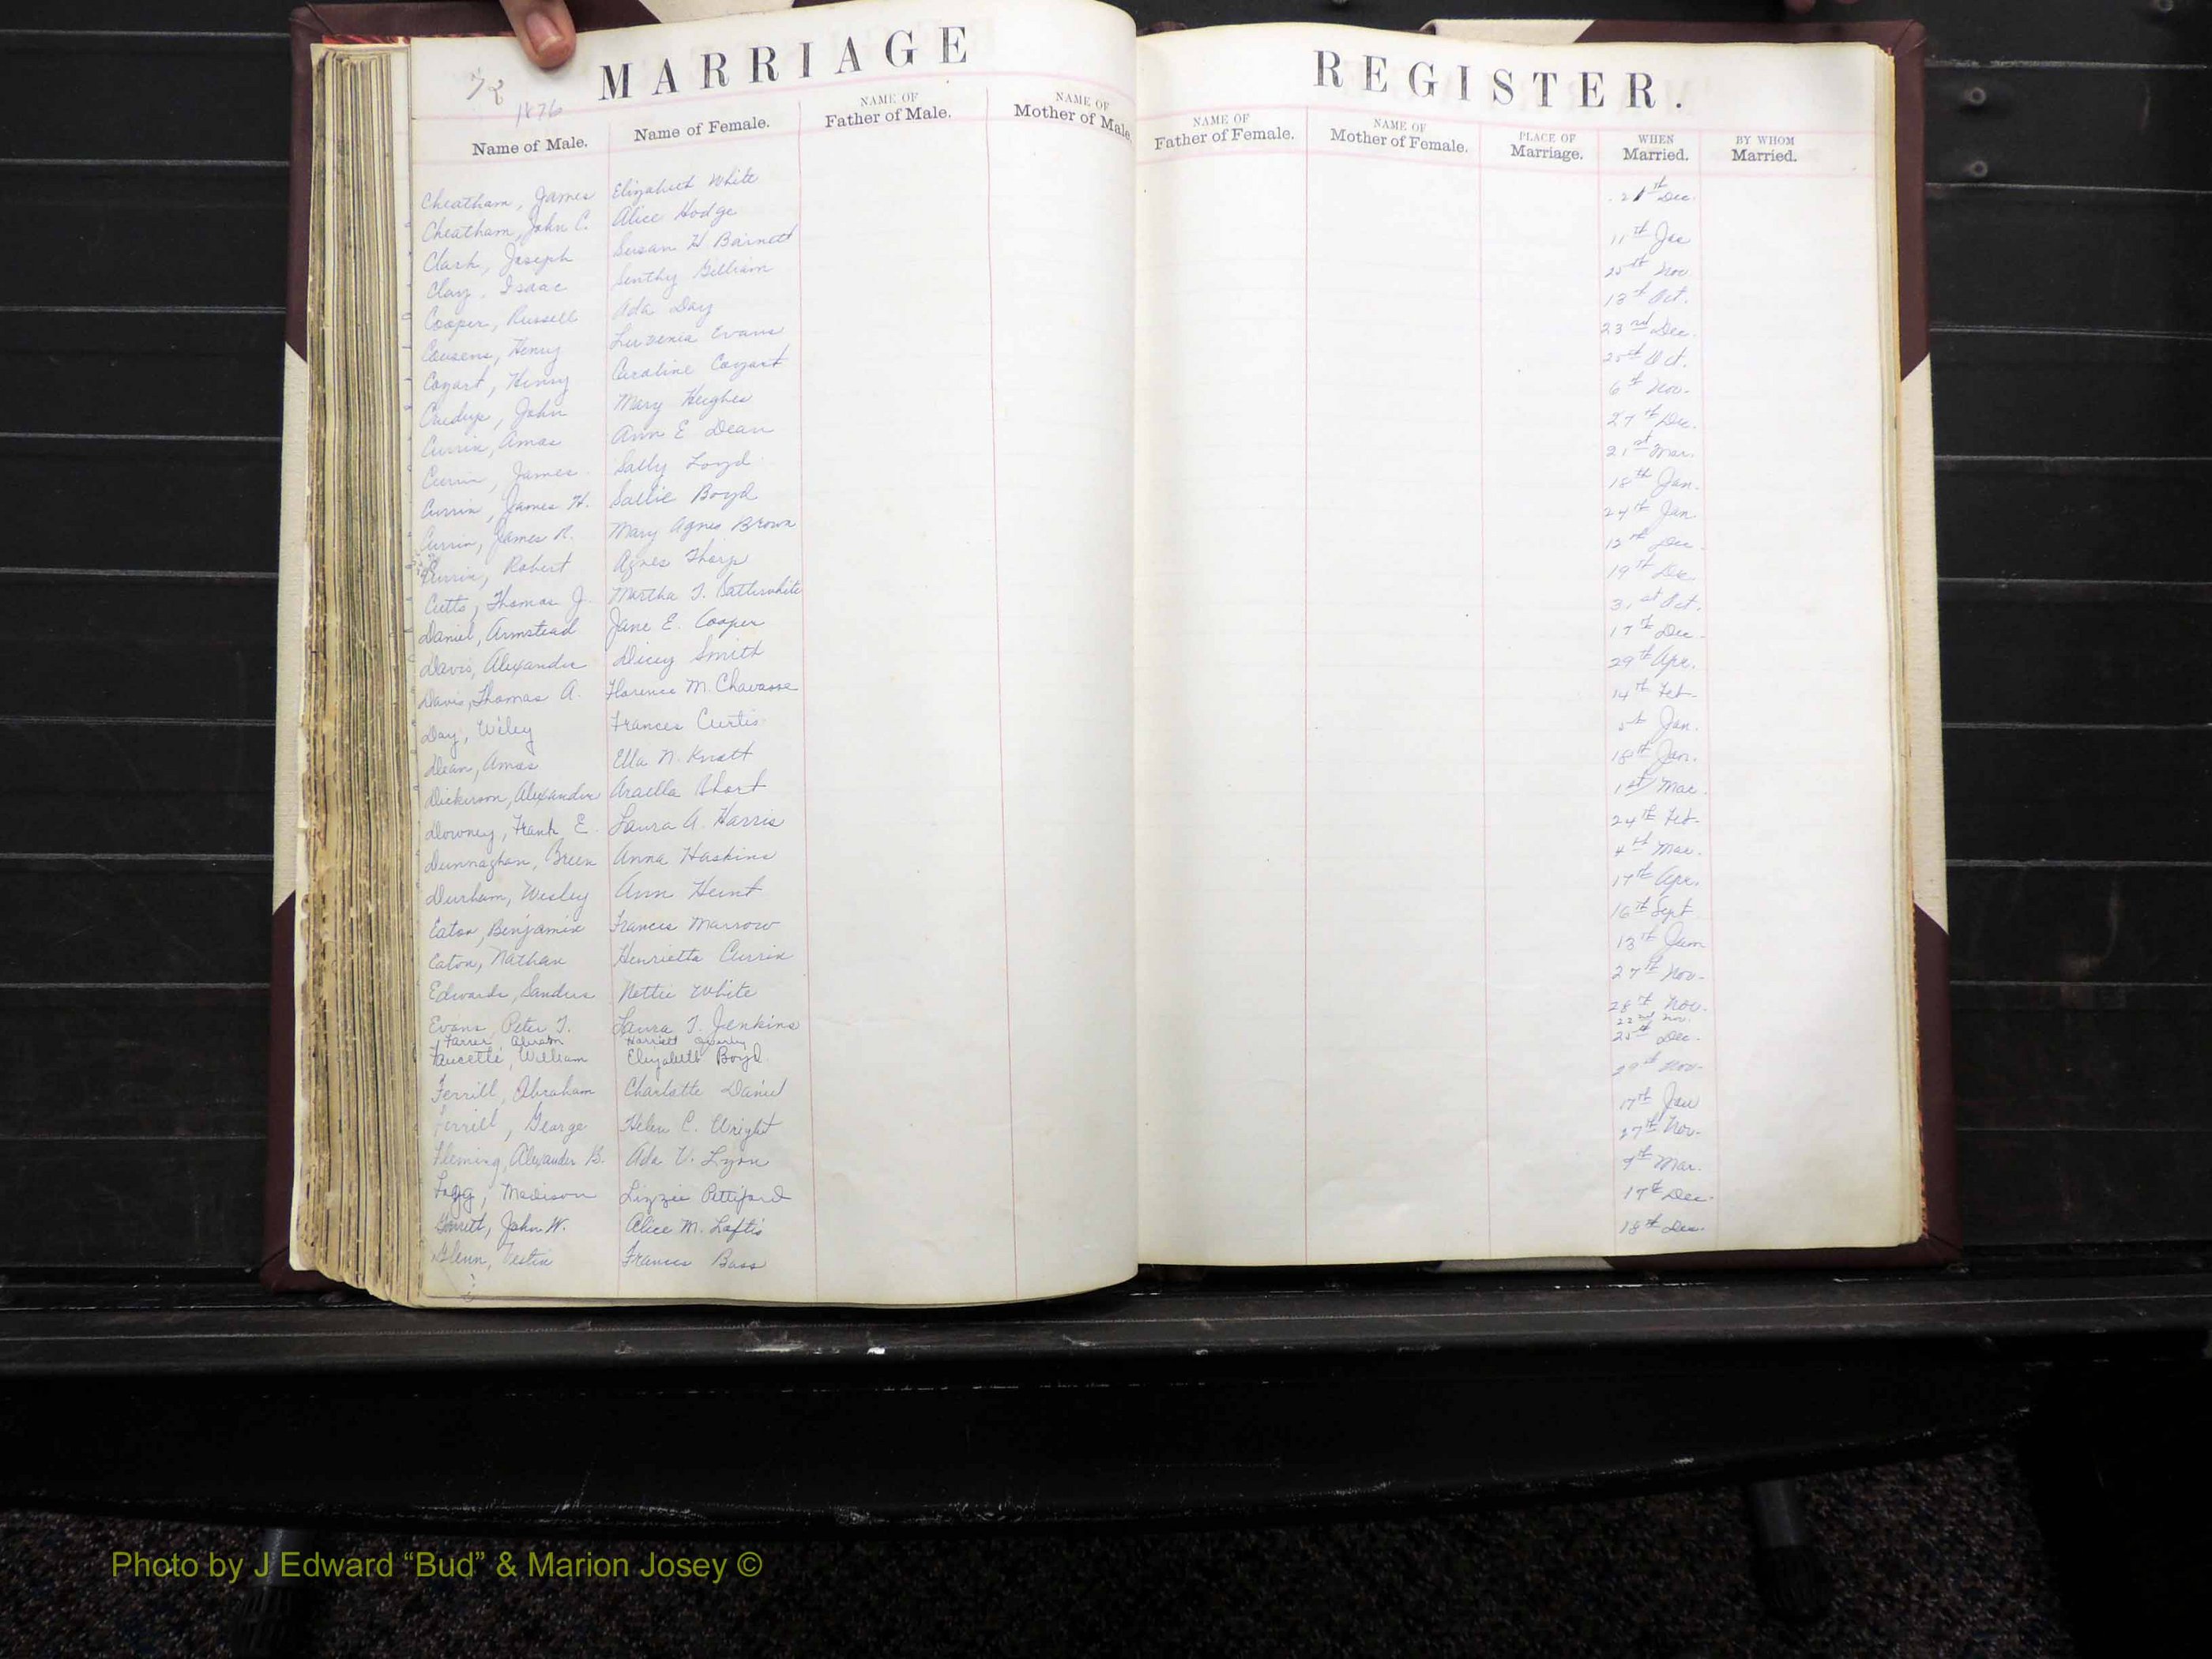 MARRIAGE REGISTER.
72
1876
Name of Male. Name of Female. NAME OF Father of Male. NAME OF Mother of Male. NAME OF Father of Female. NAME OF Mother of Female. PLACE OF Marriage. WHEN Married. BY WHOM Married.
Cheatham, James Elizabeth White 21th Dec.
Cheatham, John C. Alice Hodge
Clark, Joseph Susan H Barnett 11th
Clay, Isaac Gilliam 25th Nov
Cooper, Russell Ada Day 13th Oct.
Cousens, Henry Luvenia Evans 23rd Dec.
Cozart, Henry Caroline Cozart 25th Oct.
Crudup, John Mary Hughes 6th Nov.
Currin, Amos Ann E Dean 27th Dec.
Currin, James Sally Loyd 21st Mar.
Currin, James H. Sallie Boyd 18th Jan.
Currin, James R. Mary Agnes Brown 24th Jan.
Currin, Robert Agnes Thorp 12th Dec
Cutts, Thomas J. Martha T. Satterwhite 19th Dec
Daniel, Armstead Jane E. Cooper 31st Oct.
Davis, Alexander Dicey Smith 17th Dec
Davis, Thomas A. Florence M. Chavasse 29th Apr.
Day, Wiley Frances Curtis 14th Feb
Dean, Amos Ella N. Knott 5th Jan.
Dickerson, Alexander Short 18th Jan.
Downey, Frank E. Laura A. Harris 1st Mar.
Dunnaghan, Green Anna Haskins 24th Feb.
Durham, Wesley Ann Hunt 4th Mar.
Eaton, Benjamin Frances Marrow 17th Apr.
Eaton, Nathan Henrietta Currin 16th Sept
Edwards, Sandus Nettie White 13th
Evans, Peter T. Laura T. Jenkins 27th Nov.
Farrer, Abram Harriett 22nd Nov.
Faucette, William Elizabeth Boyd 28th Nov.
Ferrill, Abraham Charlotte Daniel 25th Dec.
Ferrill, George Helen C. Wright 29th Nov.
Fleming, Alexander B. Ada V. Lyon 17th Jan
Fogg, Madison Lizzie Pettiford 27th Nov.
Garrett, John W. Alice M. Loftis 9th Mar.
Glenn, Frances Bass 17th Dec.
18th Dec.
Photo by J Edward “Bud” & Marion Josey ©